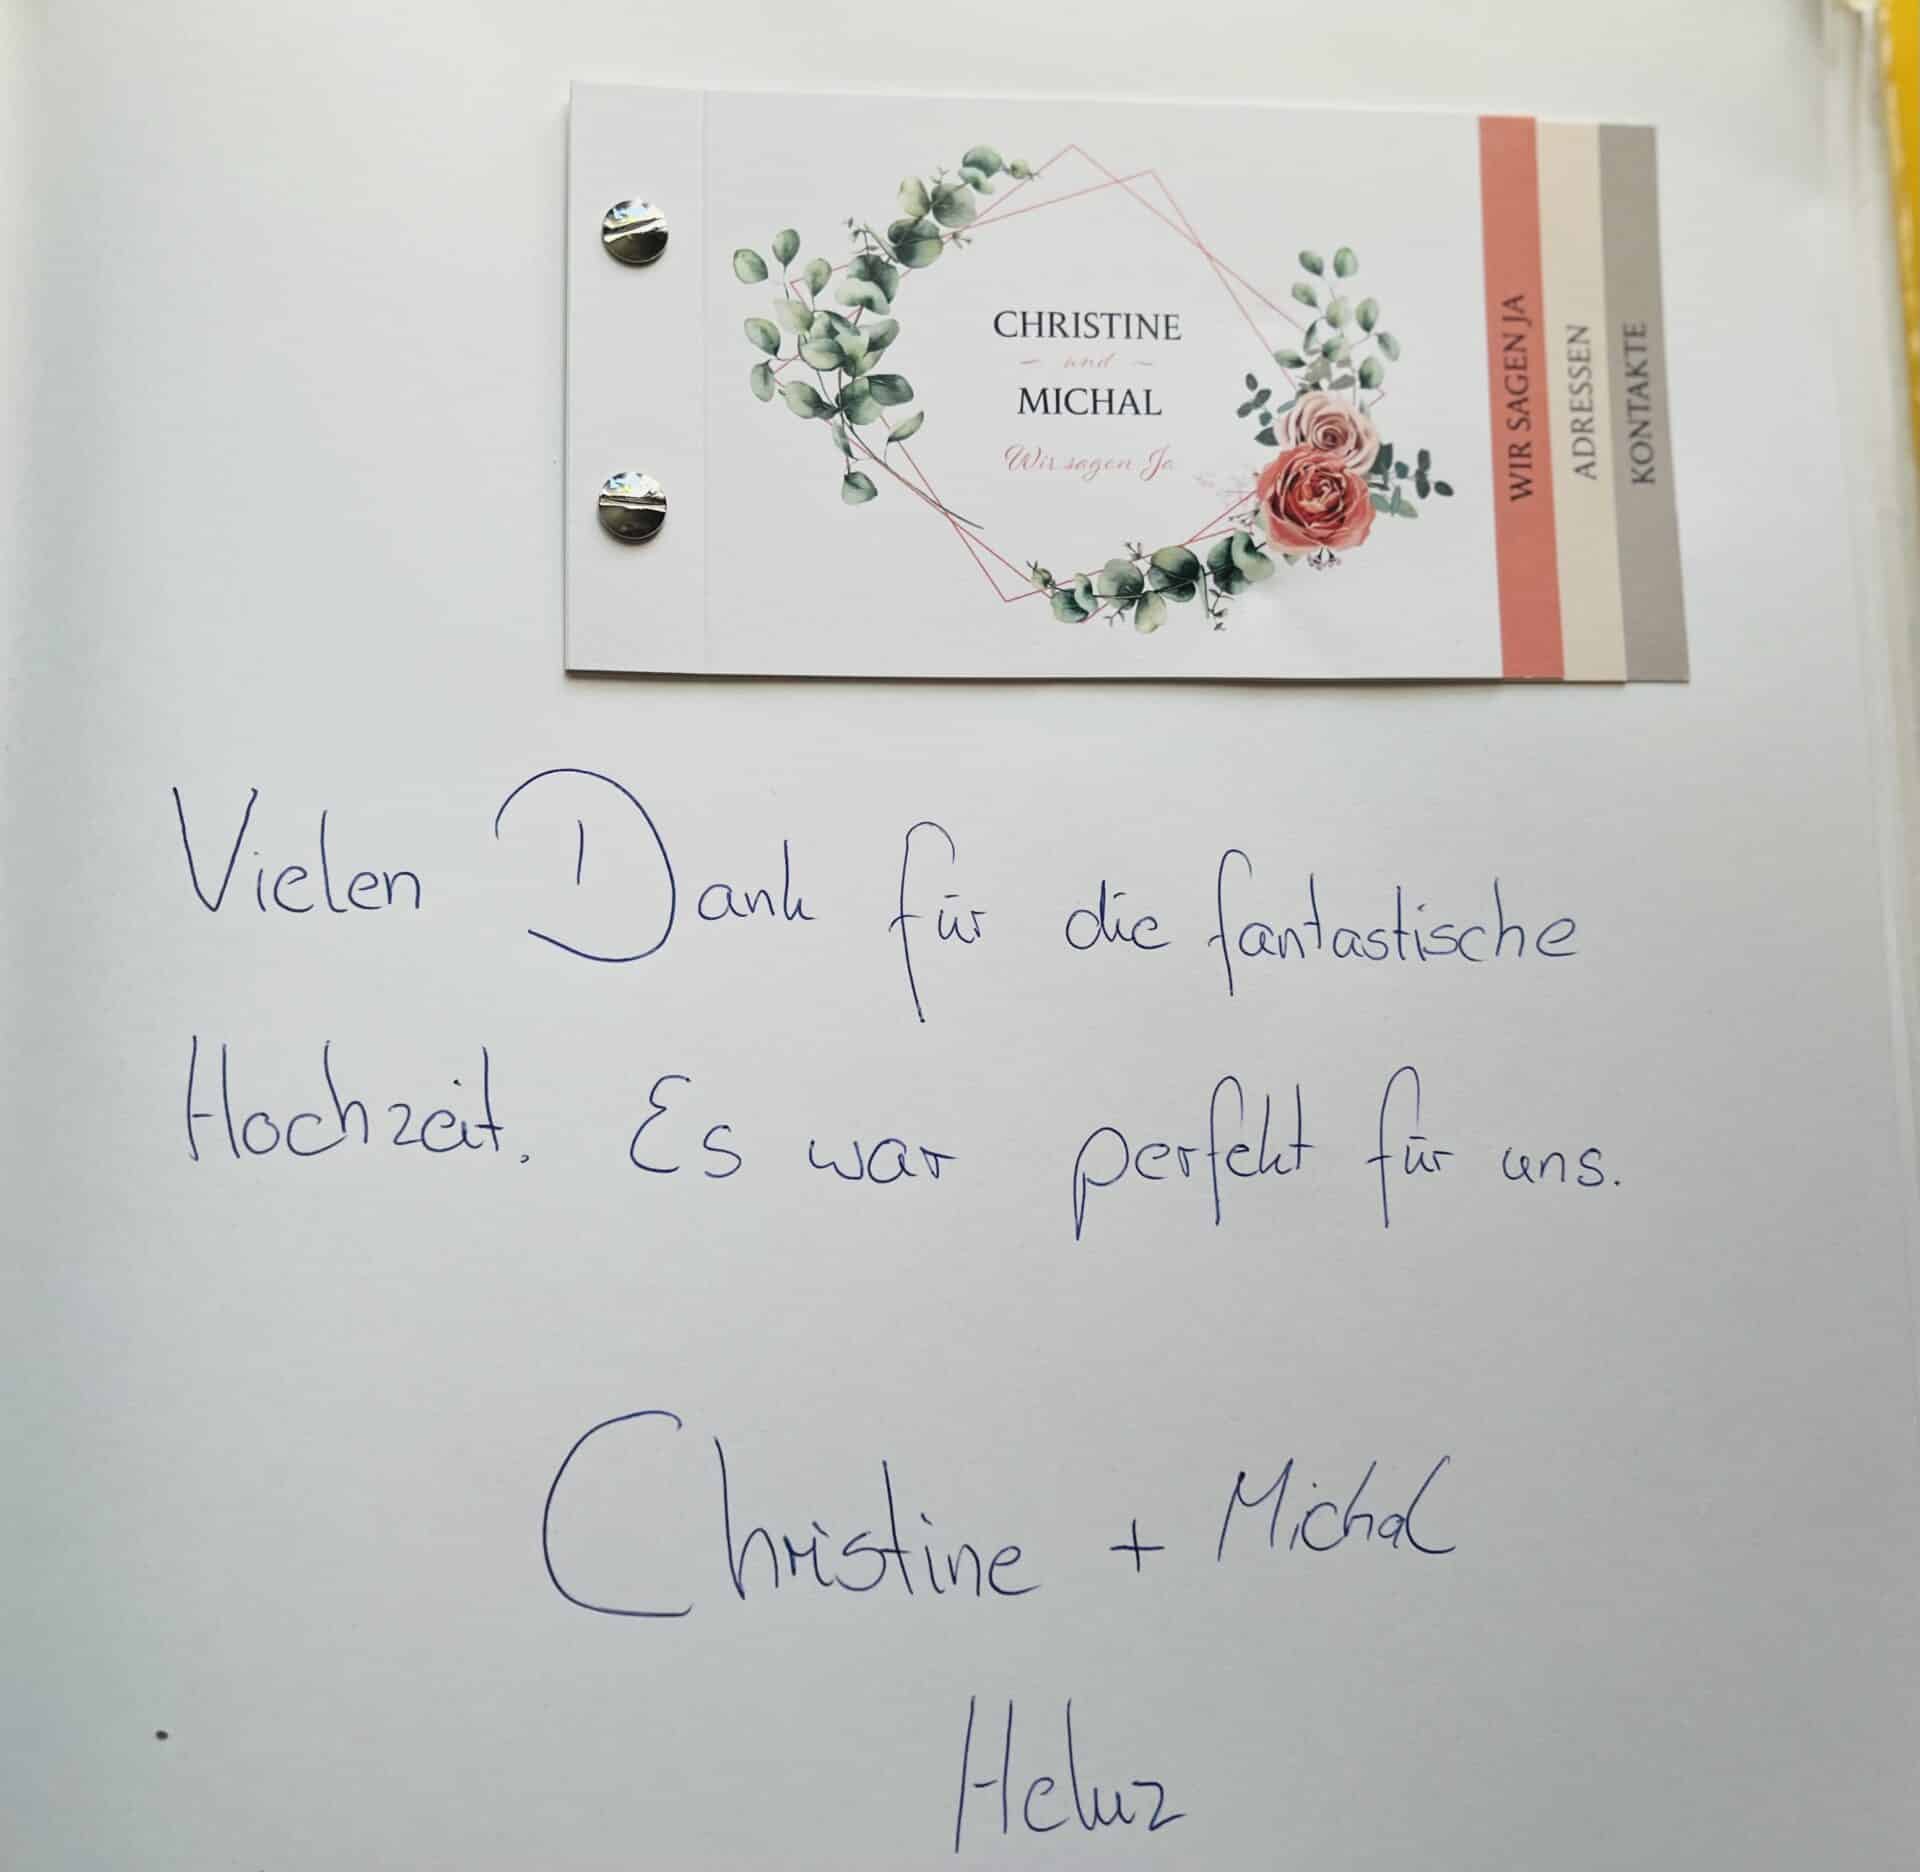 CHRISTINE
und
MICHAL
Wir sagen Ja
WIR SAGEN JA
ADRESSEN
KONTAKTE
Vielen Dank für die fantastische
Hochzeit. Es war perfekt für uns.
Christine + Michal